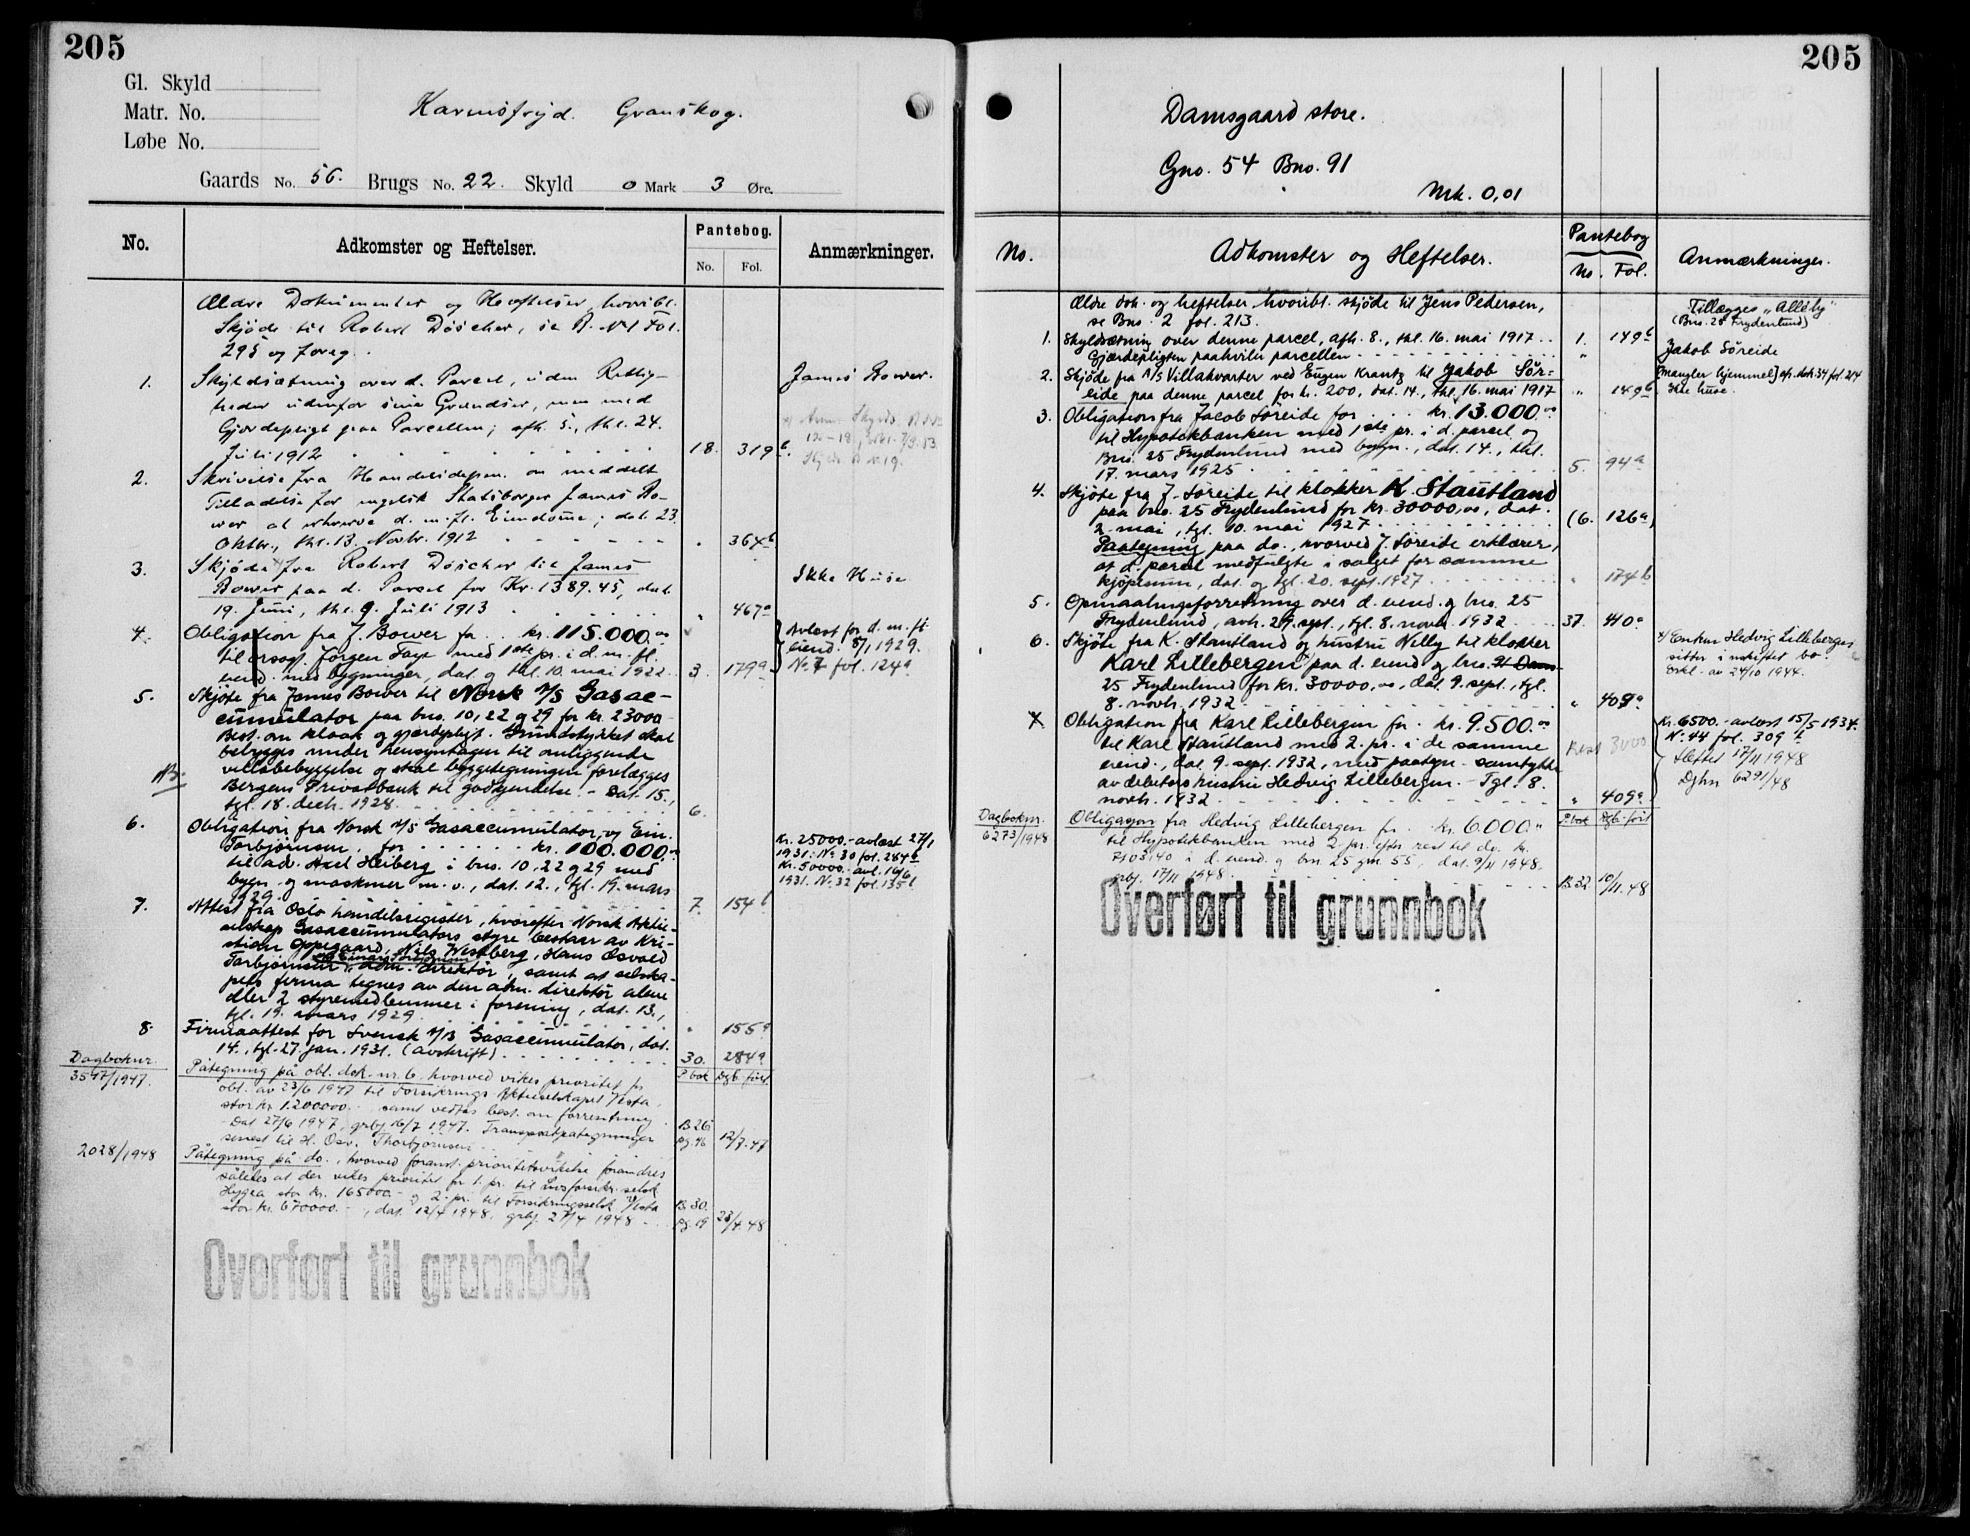 205
Gl. Skyld
Matr. No.
Løbe No.
Karmsfryd. Granskog.
Gaards No. 56. Brugs No. 22. Skyld 0 Mark 3 Øre.
No. Adkomster og Heftelser. Pantebog. No. Fol. Anmærkninger.
Ældre Dokumenter og Heftelser, hvoribl.
Skjøde til Robert Döscher, se B. No 1 Fol.
295 og foreg.
1. Skyldsætning over d. Parcel, uden Rettig-
heder udenfor sine Grændser, men med
Gjerdepligt paa Parcellen; afh. 5., thl. 24.
Juli 1912 18. 319 b.
James Bower.
2. Skrivelse fra Handelsdepm. om meddelt
Tilladelse for engelsk Statsborger James Bo-
wer at erhverve d. m. fl. Eiendomme; dat. 23.
Oktbr., thl. 13. Novbr. 1912 " 364 b
3. Skjøde fra Robert Döscher til James
Bower paa d. Parcel for Kr. 1389.45, dat.
19. Juni, thl. 9. Juli 1913 " 467 a
Ikke Huse.
4. Obligation fra J. Bower for .. kr. 115.000.00
til crsagf. Jørgen Faye med 1ste pr. i d. m. fl.
eiend. med bygninger, dat. og thl. 10. mai 1922 3. 179 a
Avlæst for d. m. fl.
eiend. 8/1 1929.
No. 7 fol. 124 a
5. Skjøte fra James Bower til Norsk A/S Gasac-
cumulator paa bno. 10, 22 og 29 for kr. 23000.-
Best. om kloak og gjærdepligt. Grundstykket skal
bebygges under hensyntagen til omliggende
villabebyggelse og skal byggetegningen forelægges
Bergens Privatbank til godkjendelse. - Dat. 15.,
tgl. 18. decb. 1928. 6.
6. Obligation fra Norsk A/S Gasaccumulator, og Ein.
Torbjørnsen, for ...... kr. 100.000.00
til adv. Axel Heiberg i bno. 10, 22 og 29 med
bygn. og maskiner m. v., dat. 12., tgl. 19. mars
1929. 7. 154 b
Kr. 25000.- avlæst 27/1
1931: No 30 fol. 284 a
Kr. 50000.- avl. 16/6
1931. No. 32 fol. 135 b
7. Attest fra Oslo handelsregister, hvorefter Norsk Aktie-
selskap Gasaccumulators styre bestaar av Kri-
stian Oppegaard, Nils Westberg, Hans Osvald
Torbjørnsen, adm. direktør, samt at selska-
pets firma tegnes av den adm. direktør alene
eller 2 styremedlemmer i forening, dat. 13.,
tgl. 19. mars 1929. " 155 a
8. Firmaattest for Svensk A/B Gasaccumulator, dat.
14., tgl. 27. jan. 1931. (avskrift) 30. 284 a
Dagboknr. P.bok Dgb. ført
3547/1947. Påtegning på obl. dok. nr. 6. hvorved vikes prioritet for
obl. av 23/6 1947 til Forsikrings Aktieselskapet Vesta
stor kr. 1.200000.- samt vedtas best. om forrentning.
Dat. 27/6 1947, grbf. 16/7 1947. Transportpategninger
senest til H. Osv. Thorbjørnsen B 26 pg. 46 12/7.47
2028/1948 Påtegning på do., hvorved foranst. prioritetsvikelse forandres
således at der vikes prioritet for 1. pr. til Livsforsikr. selsk.
Hygea stor kr. 165000.- og 2. pr. til Forsikringsselsk. Vesta
stor kr. 670000.-, dat. 12/4 1948, grbf. 27/4 1948 B. 30. pg. 19 23/4.48
Overført til grunnbok
205
Damsgaard store.
Gno. 54 Bno. 91
Mrk. 0,01
No. Adkomster og Heftelser. Pantebog No. Fol. Anmærkninger.
Ældre dok. og heftelser hvoribl. skjøde til Jens Pedersen,
se Bno. 2 fol. 213.
Tillægges "Alléby"
(Bno. 25 Frydenlund)
1. Skyldsætning over denne parcel, afh. 8., thl. 16. mai 1917 .. 1. 149 b
Gjærdepligten paahviler parcellen "
Jakob Søreide
2. Skjøde fra A/S Villakvarter ved Eugen Krantz til Jakob Sør=
eide paa denne parcel for kr. 200, dat. 14., thl. 16. mai 1917 " 149 b
(mangler hjemmel) cfr. dok. 34 fol. 214
Ikke huse.
3. Obligation fra Jacob Søreide for ... kr. 13.000.00
til Hypotekbanken med 1ste pr. i d. parcel og
Bno. 25 Frydenlund med bygn., dat. 14., thl.
17. mars 1925 5. 94 a
4. Skjøte fra J. Søreide til klokker K. Stautland
paa bno. 25 Frydenlund for kr. 30000,00, dat.
2. mai, tgl. 10. mai 1927 (6. 126 a)
Paategning paa do., hvorved J. Søreide erklærer,
at d. parcel medfulgte i salget for samme
kjøpesum, dat. og tgl. 20. sept. 1927 " 174 b
5. Opmaalingsforretning over d. eiend. og bno. 25
Frydenlund, avh. 29. sept., tgl. 8. novb. 1932 37. 40 a
6. Skjøte fra K. Stautland og hustru Nelly til klokker
Karl Lillebergen paa d. eiend. og bno.
25 Frydenlund for kr. 30000,00, dat. 9. sept., tgl.
8. novb. 1932 " 408 a
x) Enken Hedvig Lillebergen
sitter i uskiftet bo.
Erkl. av 24/10 1944.
7. Obligation fra Karl Lillebergen for . kr. 9.500.00
til Karl Stautland med 2. pr. i de samme
eiend., dat. 9. sept. 1932, med paategn. samtykke
av debitors hustru Hedvig Lillebergen. - Tgl. 8.
novb. 1932 " 409 a
Rest 3000.
Kr. 6500.- avlæst 15/5 1934.
No. 44 fol. 309 b
Slettet 17/11 1948
Dgbnr 6291/48
Dagboknr. P.bok Dgb. ført
6273/1948 Obligasjon fra Hedvig Lillebergen for . kr. 6000.00
til Hypotekbanken med 2 pr. efter rest til do. kr.
7103.40 i d. eiend. og bnr. 25 gnr. 55, dat. 9/11 1948,
grbf. 17/11 1948. B 32 10/11.48
Overført til grunnbok